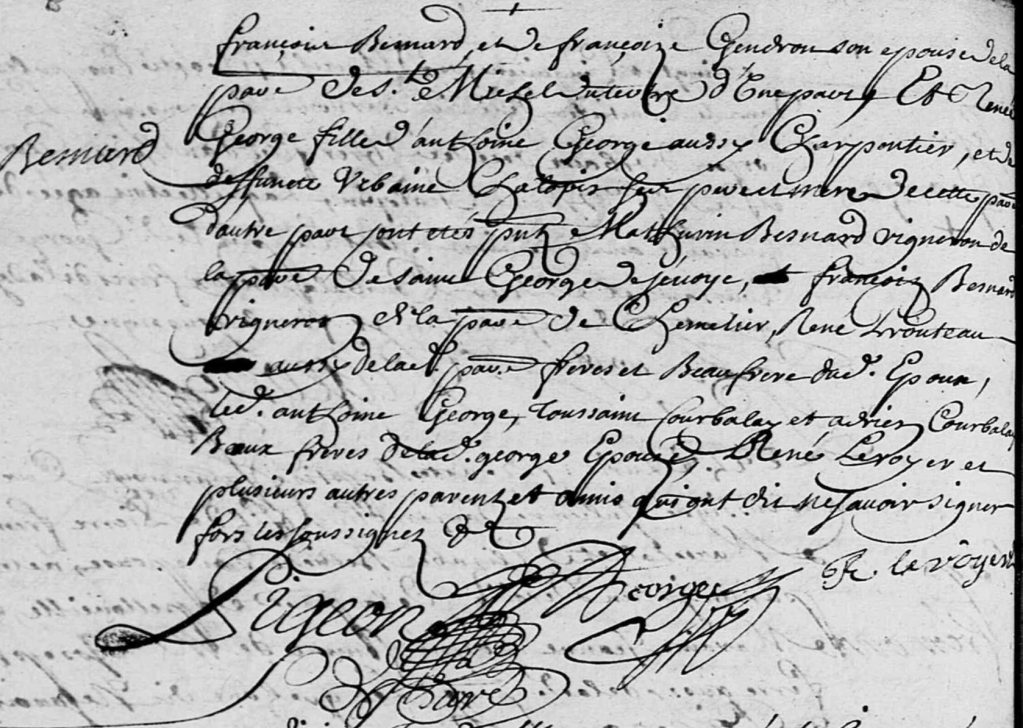 françois Besnard, et de françoize Gendron son epouse de la
parr.e de s.t Michel du tertre d'Une part, Et Renée
George fille d'anthoine George aussy Charpentier, et de
Besnard
deffuncte Urbaine Chalopin ses pere et mere de cette parr.e
d'autre part sont etés pntz Mathurin Besnard vigneron de
la parr.e de saint George de sevoye, françois Besnard
vigneron de la parr.e de Chemelier, René Trouteau
aussy de lad. parr.e freres et Beaufrere dud. Epoux,
led. anthoine George, Toussaint Courbalay et adrien Courbalay
Beaux freres de lad. george Epouze, René Leroyer et
plusieurs autres parentz et amis qui ont dit ne savoir signer
fors les soussignez
R. leroyer
George
Pigeon